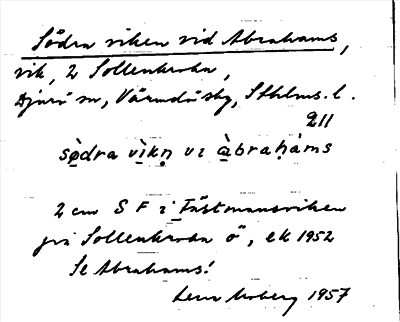 Södra viken vid Abrahams,
vik, 2 Sollenkroka,
Djurö sn, Värmdö skg, Sthlms. l.
211
sò̱dra vì̱kṇ vɩ à̱braḥàms
2 cm S F i Fästmansviken
på Sollenkroka ö, ek 1952
Se Abrahams!
Lena Moberg 1957